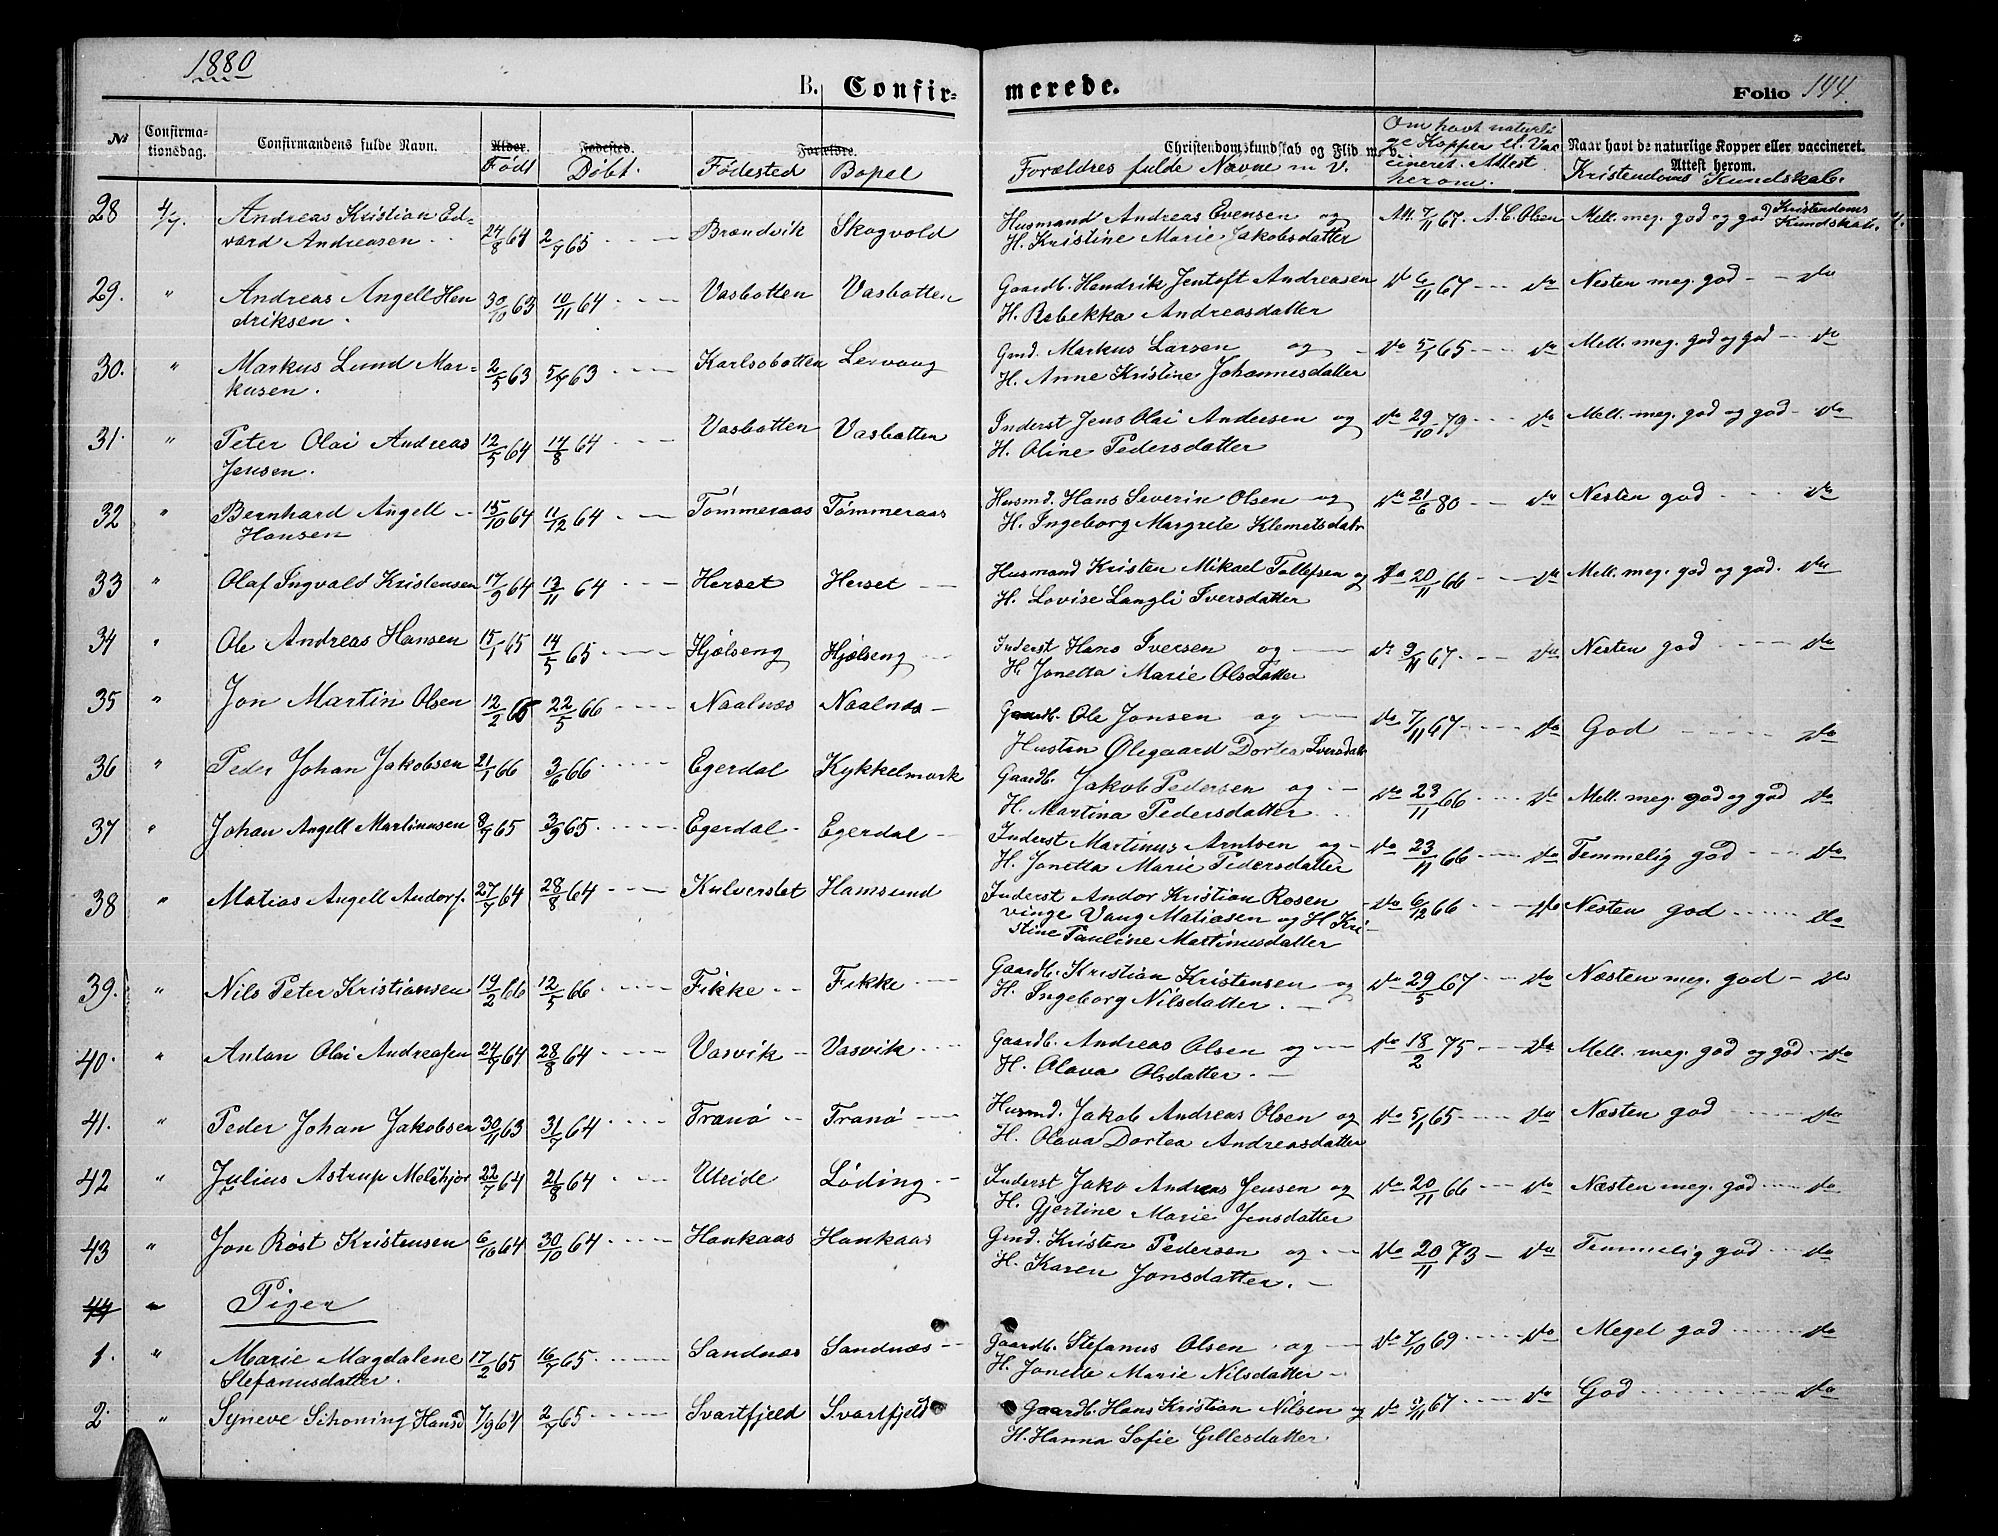 1880
B. Confirmerede.
Folio 144.
No
Confirmationsdag.
Confirmandens fulde Navn.
Alder. Født
Fødested. Døbt.
Forældre.
Fødested
Bopæl
Christendomskundskab og Flid m.v.
Forældres fulde Navne m. V.
Om havt naturlige Kopper el. Vaccineret. Attest herom.
Naar havt de naturlige Kopper eller vaccineret. Attest herom.
Kristendoms Kundskab.
28 4/7. Andreas Kristian Ed- 24/8 64 2/7 65 Brændvik Skogvold Husmand Andreas Evensen og Att. 7/11 67. A.C. Olsen Mell. meg. god og god Kristendoms
vard Andreasen H. Kristine Marie Jakobsdatter Kundskab.
29. " Andreas Angell Hen 30/10 63 10/11 64 Vasbotten Vasbotten Gaardb. Hendrik Jentoft Andreasen do 6/11 67 do Nesten meg. god do
driksen. H. Rebekka Andreasdatter
30. " Markus Lund Mar- 2/5 63 5/7 63 Karlsobotten Lervaag Gmd. Markus Larsen og do 5/1 65 do Mell. meg. god og god do
kusen. H. Anne Kristine Johannesdatter
31. " Peter Olai Andreas 12/5 64 14/8 64 Vasbotten Vasbotten Inderst Jens Olai Andersen og do 29/10 79 do Mell. meg. god og god do
Jensen. H. Oline Pedersdatter
32 " Bernhard Angell 15/10 64 11/12 64 Tømmeraas Tømmeraas Husmd. Hans Severin Olsen og do 21/6 80 do Nesten god do
Hansen H. Ingeborg Margrete Klemetsdatr
33 " Olaf Ingvald Kristensen 17/9 64 13/11 64 Herset Herset Husmand Kristen Mikael Tollefsen og do 20/11 66 do Mell. meg. god og god. do
H. Lovise Langli Iversdatter
34 " Ole Andreas Hansen 15/1 65 14/5 65 Hjølseng Hjølseng Inderst Hans Iversen og do 9/11 67 do Nesten god do
H. Jonetta Marie Olsdatter
35 " Jon Martin Olsen 12/2 66 22/5 66 Naalnæs Naalnæs Gaardb. Ole Jonsen og do 7/11 67 do God do
Hustru Olegaard Dortea Iversdatr
36 " Peder Johan Jakobsen 21/1 66 3/6 66 Egerdal Kykkelmark Gaardb. Jakob Pedersen og do 23/11 66 do Mell. meg. god og god do
H. Martina Pedersdatter
37 " Johan Angell Martinusen 8/7 65 3/9 65 Egerdal Egerdal Inderst Martinus Arntsen og do 23/11 66 do Temmelig god do
H. Jonetta Marie Pedersdatter
38 " Matias Angell Andorf. 27/7 64 28/8 64 Kulverslet Hamsund Inderst Andor Kristian Rosen do 6/12 66 do Nesten god do
vinge Vang Matiasen og H. Kri-
stine Pauline Martinusdatter
39. " Nils Peter Kristiansen 19/2 66 12/5 66 Fikke Fikke Gaardb. Kristian Kristensen og do 29/5 67 do Næsten meg. god do
H. Ingeborg Nilsdatter.
40. " Anton Olai Andreasen 24/7 64 28/8 64 Vasvik Vasvik Gaardb. Andreas Olsen og do 18/2 75 do Mell. meg. god og god do
H. Olava Olsdatter.
41. " Peder Johan Jakobsen 30/11 63 31/7 64 Tranø Tranø Husmd. Jakob Andreas Olsen og do 5/1 65 do Næsten god do
H. Olava Dortea Andreasdatter
42 " Julius Astrup Melchjor 22/7 64 21/8 64 Uteide Løding Inderst Jako Andreas Jensen og do 20/11 66 do Næsten meg. god do
H. Gjertine Marie Jensdatter
43 " Jon Røst Kristensen 6/10 64 30/10 64 Hankaas Hankaas Gmd. Kristen Pedersen og do 20/11 73 do Temmelig god do
H. Karen Jonsdatter.
44 " Piger
1. " Marie Magdalene 17/2 65 16/7 65 Sandnæs Sandnæs Gaardb. Stefanus Olsen og do 7/10 69 do Meget god do
Stefanusdatter. H. Jonette Marie Nilsdatter
2. " Syneve Schoning Hansd 7/9 64 2/7 65 Svartfjeld Svartfjeld Gaardb. Hans Kristian Nilsen og do 9/11 67 do God do
H. Hanna Sofie Gillesdatter.